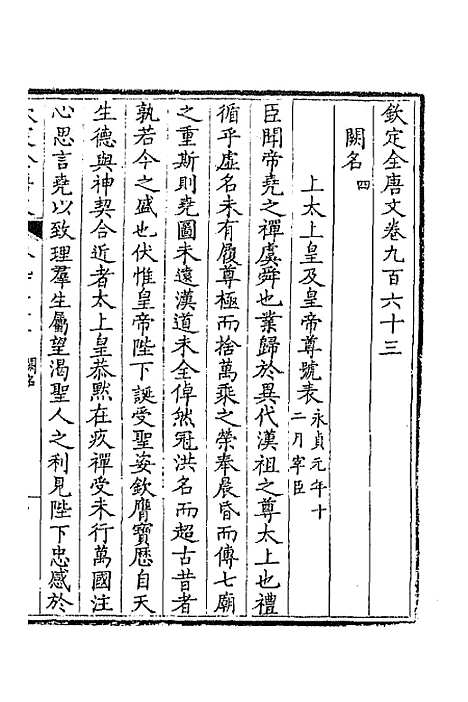 欽定全唐文卷九百六十三
闕名 四
上太上皇及皇帝尊號表 永貞元年十
二月宰臣
臣聞帝堯之禪虞舜也業歸於異代漢祖之尊太上也禮
循乎虛名未有履尊極而捨萬乘之榮奉晨昏而傳七廟
之重斯則堯圖未遠漢道未全倬然冠洪名而超古昔者
孰若今之盛也伏惟皇帝陛下誕受聖姿欽膺寶歷自天
生德與神契合近者太上皇恭默在疚禪受未行萬國注
心思言堯以致理羣生屬望渴聖人之利見陛下忠感於
闕名